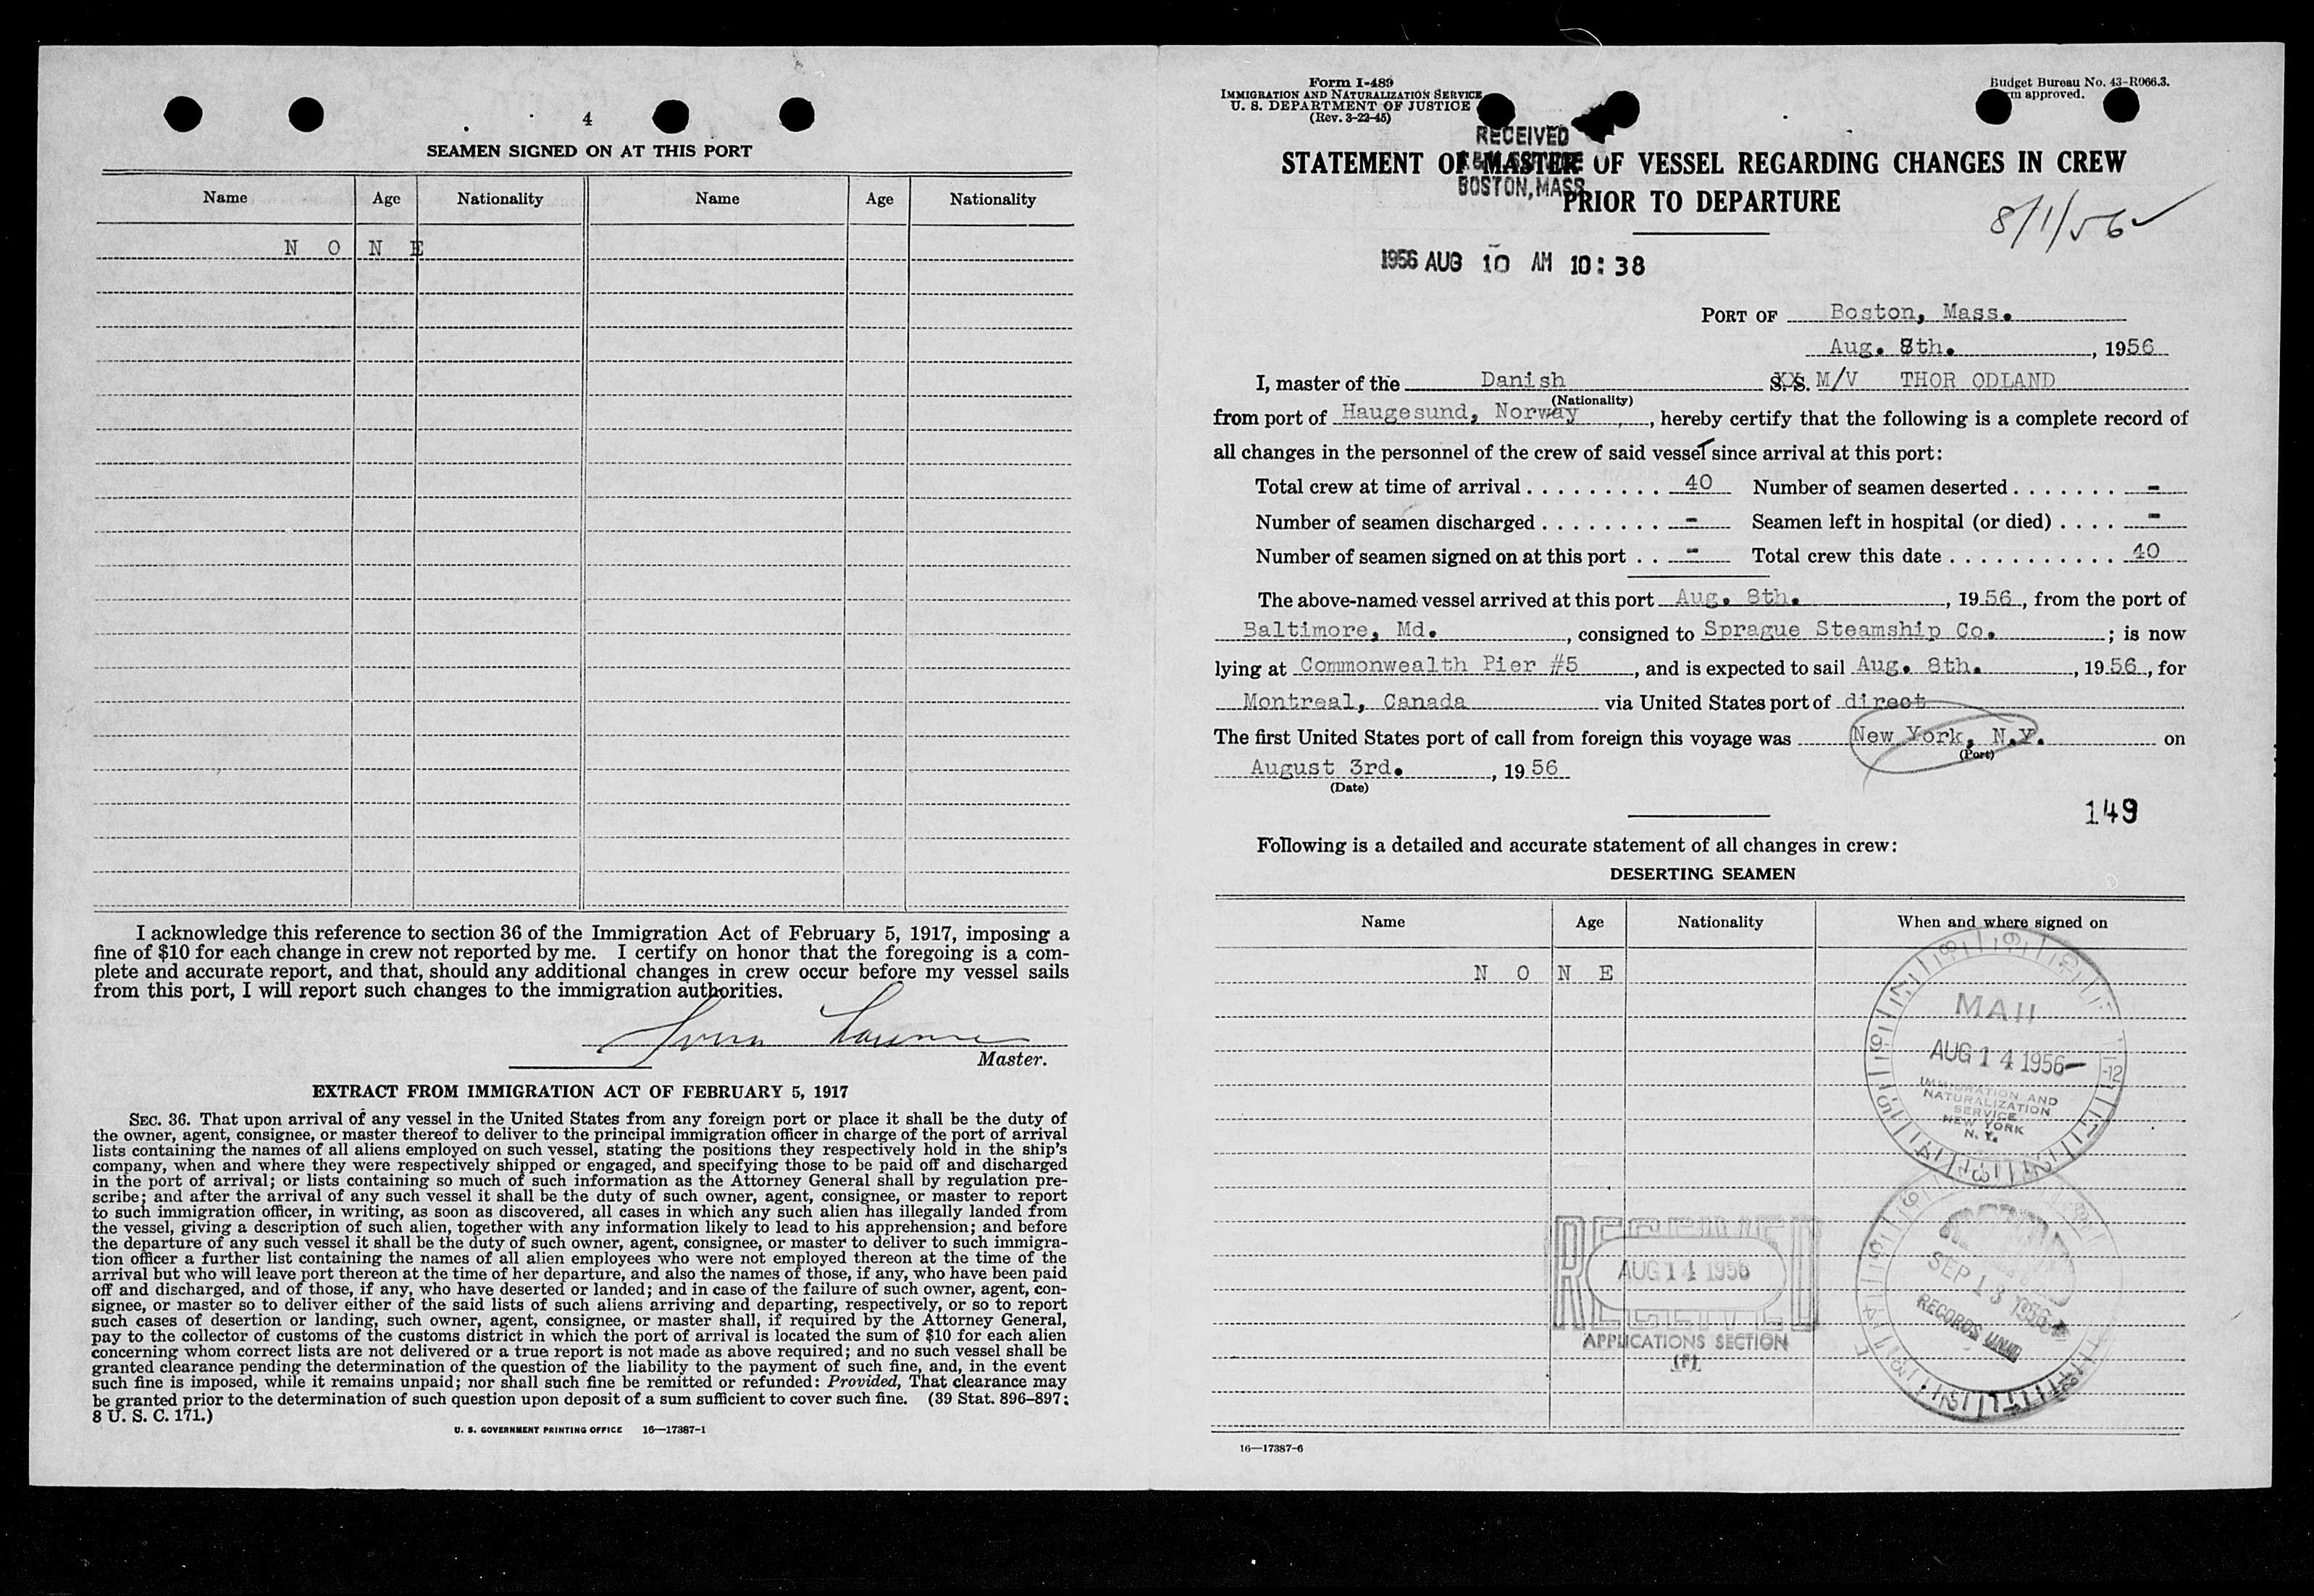 4
SEAMEN SIGNED ON AT THIS PORT
Name Age Nationality Name Age Nationality
N O N E
I acknowledge this reference to section 36 of the Immigration Act of February 5, 1917, imposing a
fine of $10 for each change in crew not reported by me. I certify on honor that the foregoing is a com-
plete and accurate report, and that, should any additional changes in crew occur before my vessel sails
from this port, I will report such changes to the immigration authorities.
Master.
EXTRACT FROM IMMIGRATION ACT OF FEBRUARY 5, 1917
SEC. 36. That upon arrival of any vessel in the United States from any foreign port or place it shall be the duty of
the owner, agent, consignee, or master thereof to deliver to the principal immigration officer in charge of the port of arrival
lists containing the names of all aliens employed on such vessel, stating the positions they respectively hold in the ship's
company, when and where they were respectively shipped or engaged, and specifying those to be paid off and discharged
in the port of arrival; or lists containing so much of such information as the Attorney General shall by regulation pre-
scribe; and after the arrival of any such vessel it shall be the duty of such owner, agent, consignee, or master to report
to such immigration officer, in writing, as soon as discovered, all cases in which any such alien has illegally landed from
the vessel, giving a description of such alien, together with any information likely to lead to his apprehension; and before
the departure of any such vessel it shall be the duty of such owner, agent, consignee, or master to deliver to such immigra-
tion officer a further list containing the names of all alien employees who were not employed thereon at the time of the
arrival but who will leave port thereon at the time of her departure, and also the names of those, if any, who have been paid
off and discharged, and of those, if any, who have deserted or landed; and in case of the failure of such owner, agent, con-
signee, or master so to deliver either of the said lists of such aliens arriving and departing, respectively, or so to report
such cases of desertion or landing, such owner, agent, consignee, or master shall, if required by the Attorney General,
pay to the collector of customs of the customs district in which the port of arrival is located the sum of $10 for each alien
concerning whom correct lists are not delivered or a true report is not made as above required; and no such vessel shall be
granted clearance pending the determination of the question of the liability to the payment of such fine, and, in the event
such fine is imposed, while it remains unpaid; nor shall such fine be remitted or refunded: Provided, That clearance may
be granted prior to the determination of such question upon deposit of a sum sufficient to cover such fine. (39 Stat. 896–897;
8 U. S. C. 171.)
U. S. GOVERNMENT PRINTING OFFICE 16—17387-1
Form I-489
IMMIGRATION AND NATURALIZATION SERVICE
U. S. DEPARTMENT OF JUSTICE
(Rev. 3-22-45)
Budget Bureau No. 43-R066.3.
approved.
RECEIVED
STATEMENT OF MASTER OF VESSEL REGARDING CHANGES IN CREW
BOSTON, MASS
PRIOR TO DEPARTURE
8/1/56
1956 AUG 10 AM 10:38
PORT OF Boston, Mass.
Aug. 8th., 1956
I, master of the Danish S. S. M/V THOR ODLAND
(Nationality)
from port of Haugesund, Norway, hereby certify that the following is a complete record of
all changes in the personnel of the crew of said vessel since arrival at this port:
Total crew at time of arrival . . . . . . . . . 40 Number of seamen deserted . . . . . . . -
Number of seamen discharged . . . . . . . . - Seamen left in hospital (or died) . . . . -
Number of seamen signed on at this port . . - Total crew this date . . . . . . . . . . . 40
The above-named vessel arrived at this port Aug. 8th., 1956, from the port of
Baltimore, Md., consigned to Sprague Steamship Co.; is now
lying at Commonwealth Pier #5, and is expected to sail Aug. 8th., 1956, for
Montreal, Canada via United States port of direct
The first United States port of call from foreign this voyage was New York, N.Y. on
(Port)
August 3rd., 1956
(Date)
149
Following is a detailed and accurate statement of all changes in crew:
DESERTING SEAMEN
Name Age Nationality When and where signed on
N O N E
MAIL
AUG 14 1956
IMMIGRATION AND
NATURALIZATION
SERVICE
NEW YORK
N. Y.
RECEIVED
AUG 14 1956
APPLICATIONS SECTION
(F)
SEP 13 1956
RECORDS UNIT
16—17387-6